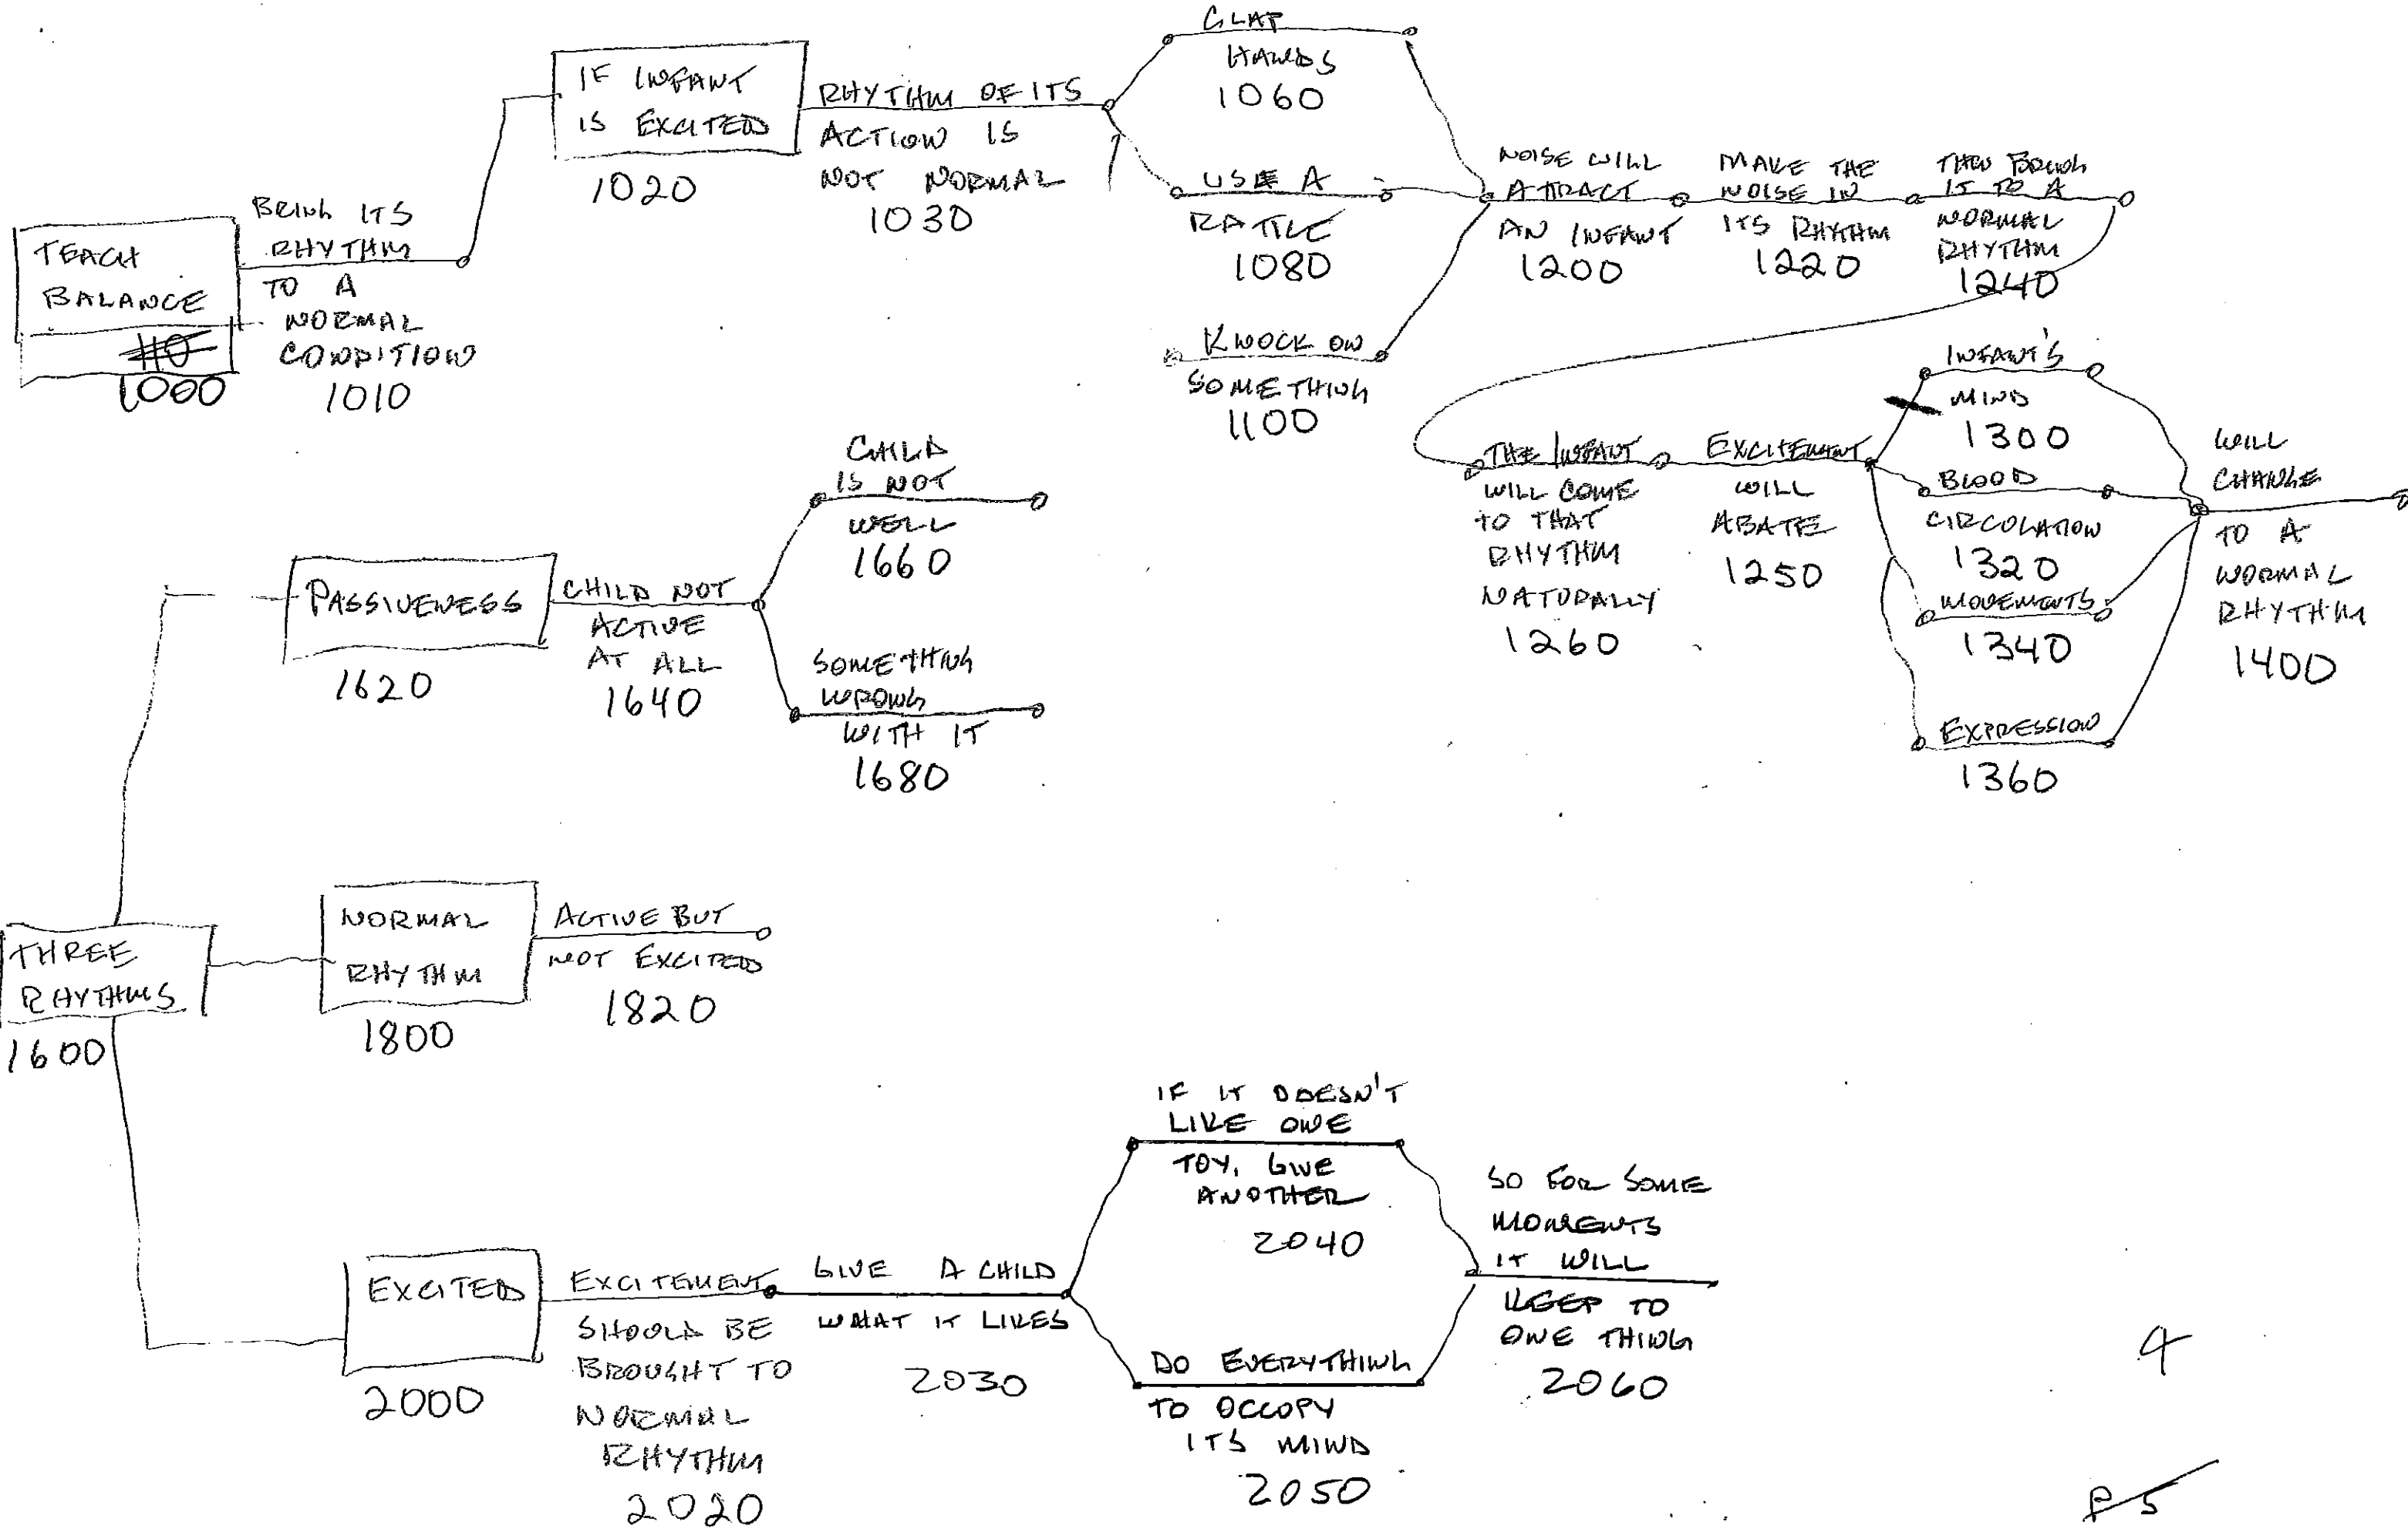 TEACH
BALANCE
1000
BRING ITS
RHYTHM
TO A
NORMAL
CONDITION
1010
IF INFANT
IS EXCITED
1020
RHYTHM OF ITS
ACTION IS
NOT NORMAL
1030
CLAP
HANDS
1060
USE A
RATTLE
1080
KNOCK ON
SOMETHING
1100
NOISE WILL
ATTRACT
AN INFANT
1200
MAKE THE
NOISE IN
ITS RHYTHM
1220
THEN BRING
IT TO A
NORMAL
RHYTHM
1240
THE INFANT
WILL COME
TO THAT
RHYTHM
NATURALLY
1260
EXCITEMENT
WILL
ABATE
1250
INFANT'S
MIND
1300
BLOOD
CIRCULATION
1320
MOVEMENTS
1340
EXPRESSION
1360
WILL
CHANGE
TO A
NORMAL
RHYTHM
1400
THREE
RHYTHMS
1600
PASSIVENESS
1620
CHILD NOT
ACTIVE
AT ALL
1640
CHILD
IS NOT
WELL
1660
SOMETHING
WRONG
WITH IT
1680
NORMAL
RHYTHM
1800
ACTIVE BUT
NOT EXCITED
1820
EXCITED
2000
EXCITEMENT
SHOULD BE
BROUGHT TO
NORMAL
RHYTHM
2020
GIVE A CHILD
WHAT IT LIKES
2030
IF IT DOESN'T
LIKE ONE
TOY, GIVE
ANOTHER
2040
DO EVERYTHING
TO OCCUPY
ITS MIND
2050
SO FOR SOME
MOMENTS
IT WILL
KEEP TO
ONE THING
2060
4
P 5